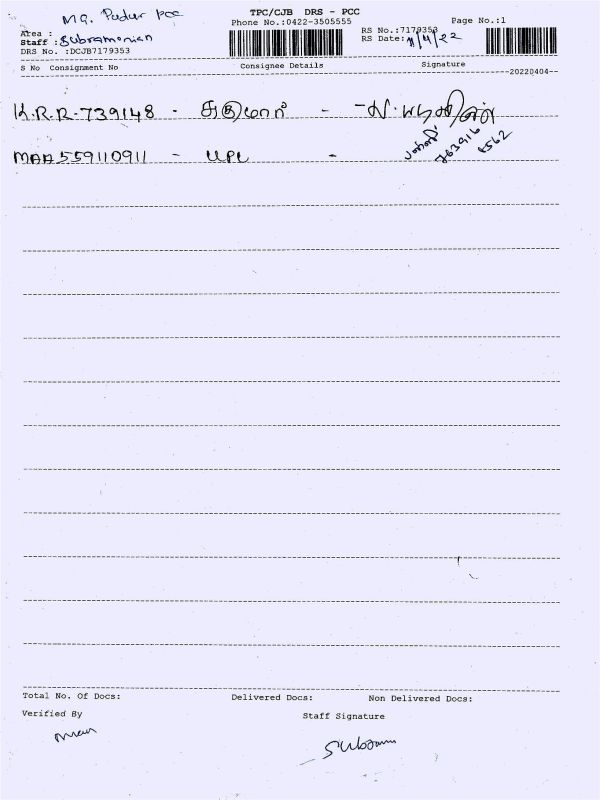 MG. Pudur PCC
TPC/CJB DRS - PCC
Phone No.:0422-3505555
Page No.:1
Area :
Staff : Subramanian
DRS No. :DCJB7179353
RS No.:7179353
RS Date: 11/4/22
S No Consignment No Consignee Details Signature
20220404
K.R.R-739148 - சுகுமார் -
MAA559110911 - UPL -
Total No. Of Docs: Delivered Docs: Non Delivered Docs:
Verified By Staff Signature
Subram